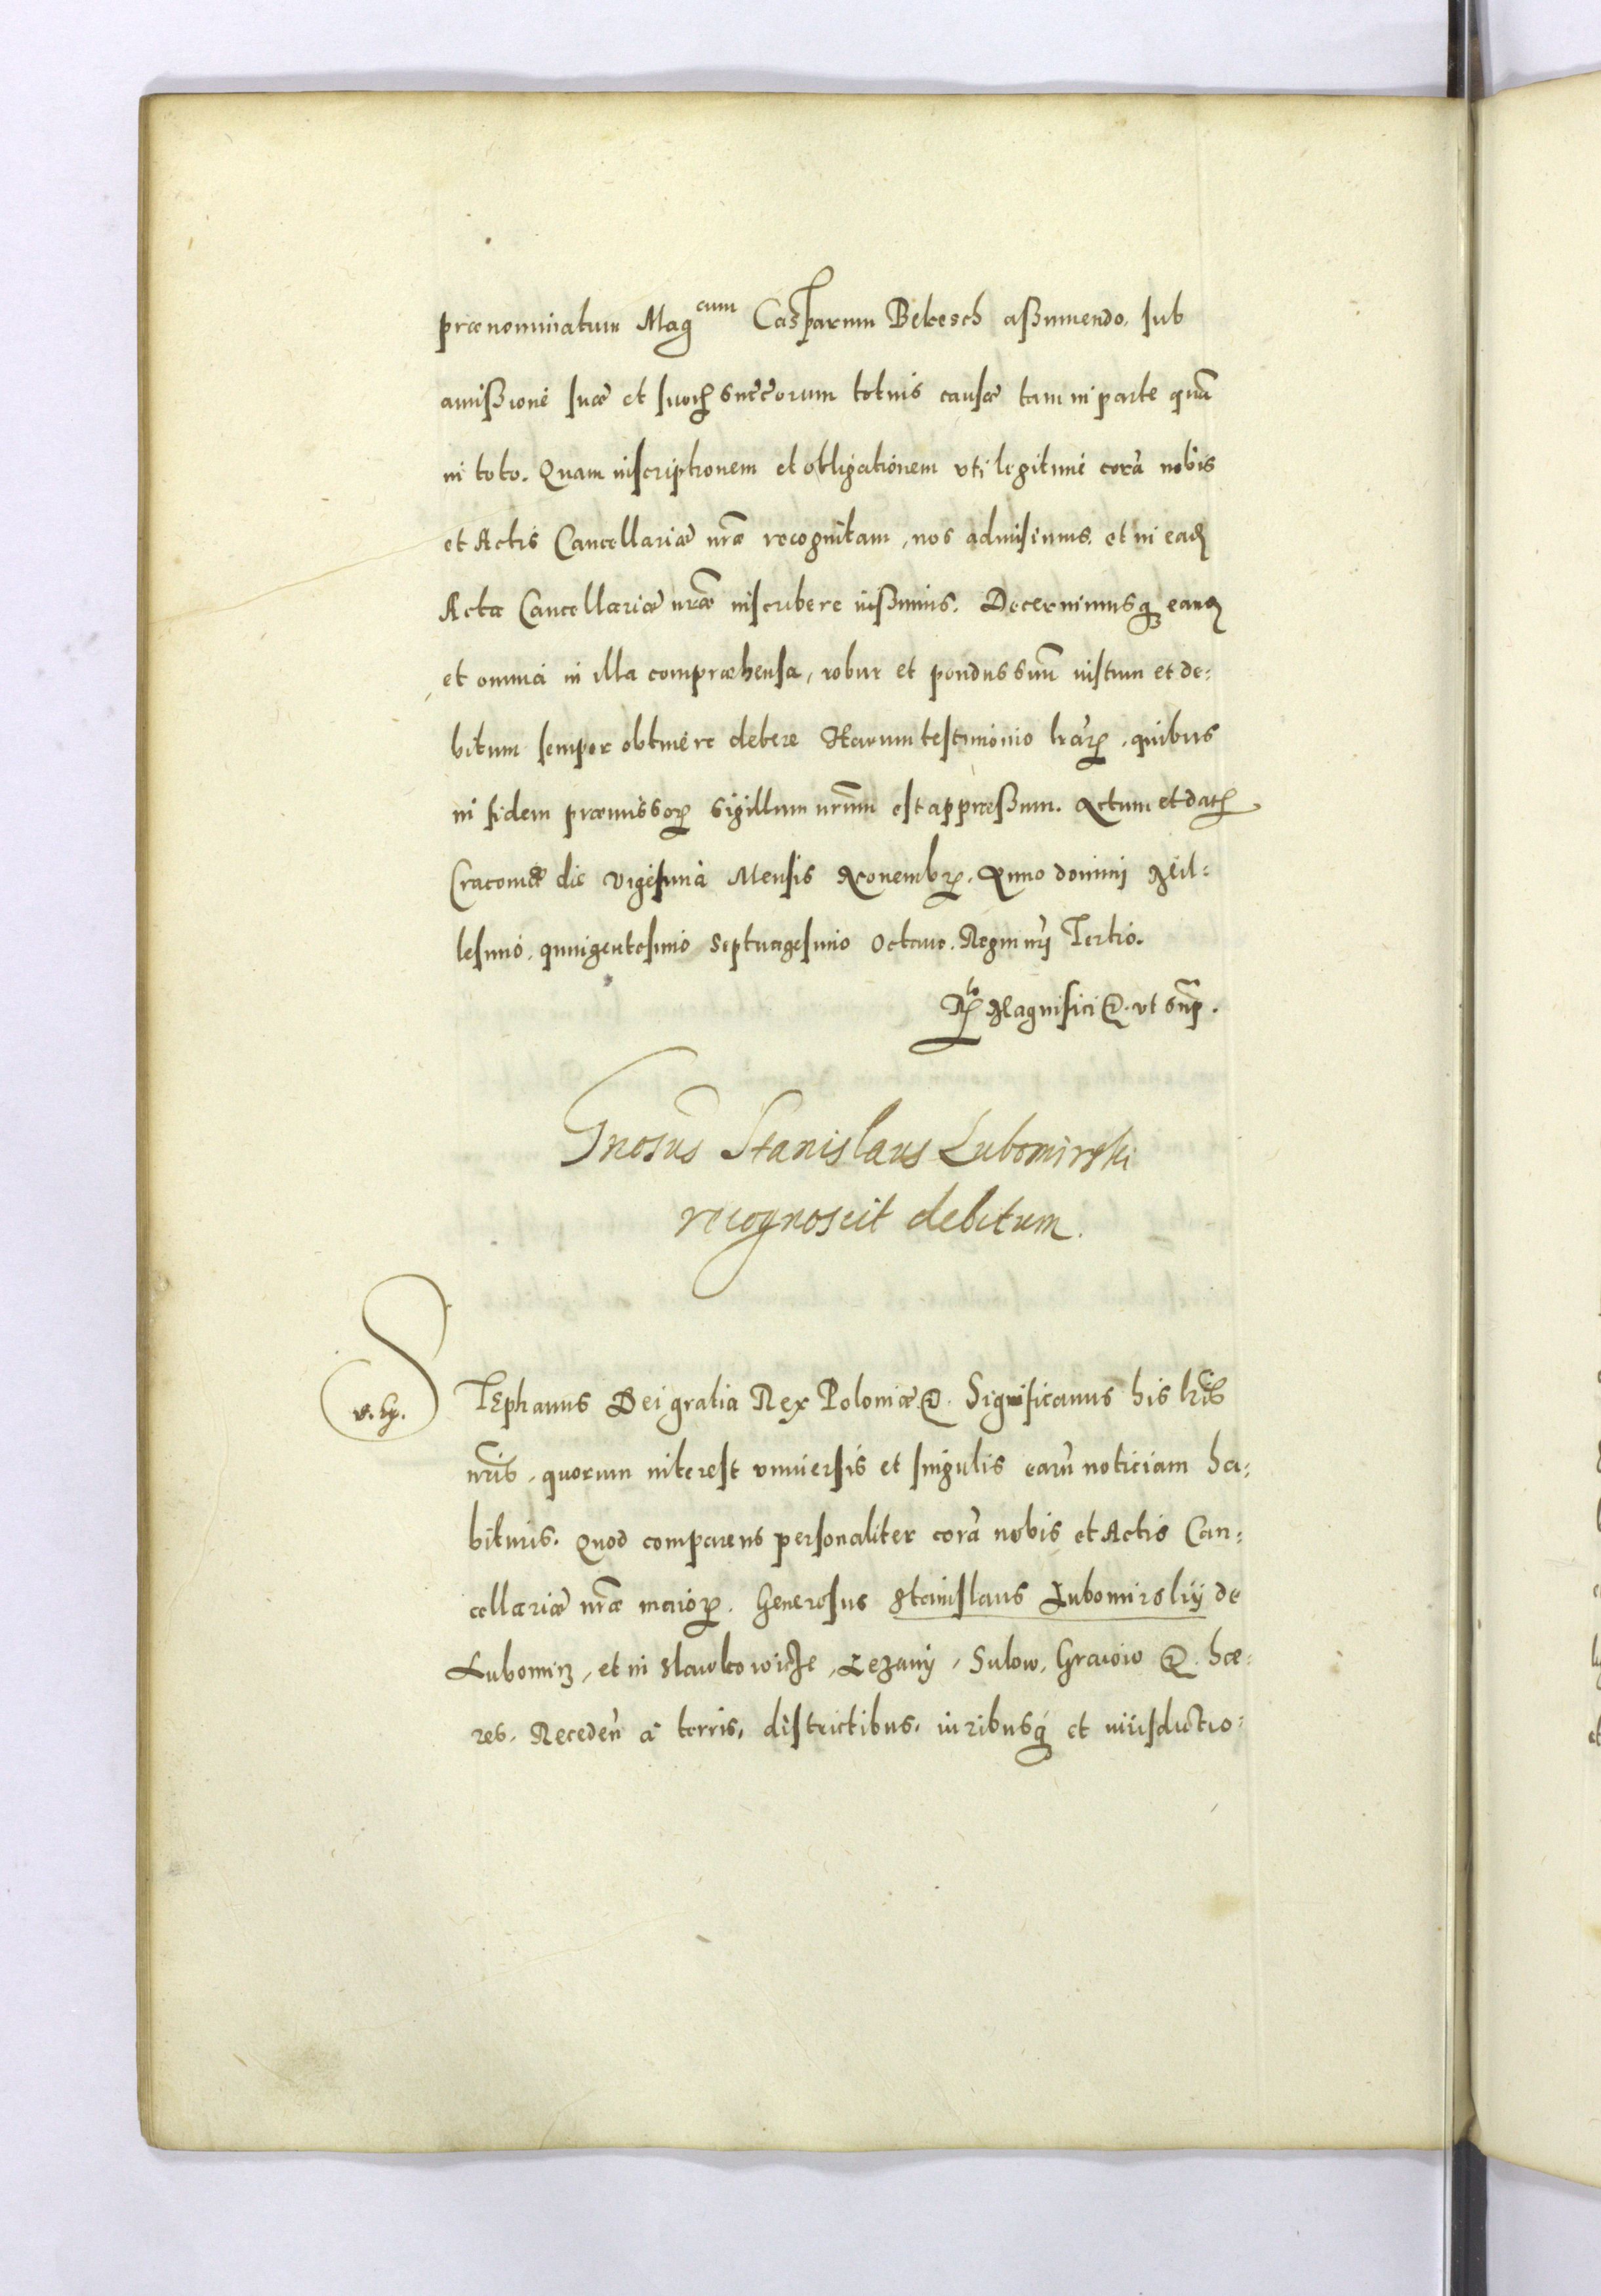 prænominatum Mag^cum Casparum Bekesch aßumendo, sub
amißione suæ et suor succorum totius causæ tam in parte quã
in toto. Quam inscriptionem et obligationem uti legitime corã nobis
et Actis Cancellariæ nræ recognitam, nos admisimus, et in eadē
Acta Cancellariæ nræ inscribere iußimus. Decernimusq3 eandē
et omnia in illa compræhensa, robur et pondus suũ iustum et de:
bitum semper obtinere debere Harum testimonio lrar, quibus
in fidem præmissor sigillum nrum est appræßum. Actum et dat
Cracouiæ die vigesima Mensis Nouembr, Anno domini Mil:
lesimo, quingentesimo Septuagesimo Octauo. Regni nri Tertio.
Rlo Magnifici &. ut sup.
Gnosus Stanislaus Lubomirski
recognoscit debitum.
STEphanus Dei gratia Rex Poloniæ &. Significamus his lris
nris, quorum interest uniuersis et singulis earũ noticiam ha:
bituris. Quod comparens personaliter corã nobis et Actis Can:
cellariæ nræ maior. Generosus Stanislaus Lubomirskij de
Lubomirz, et in Slawkowicze, Lezany, Sulow, Grawow &. hæ:
res. Receden a terris, districtibus, iuribusq et iurisdictio: